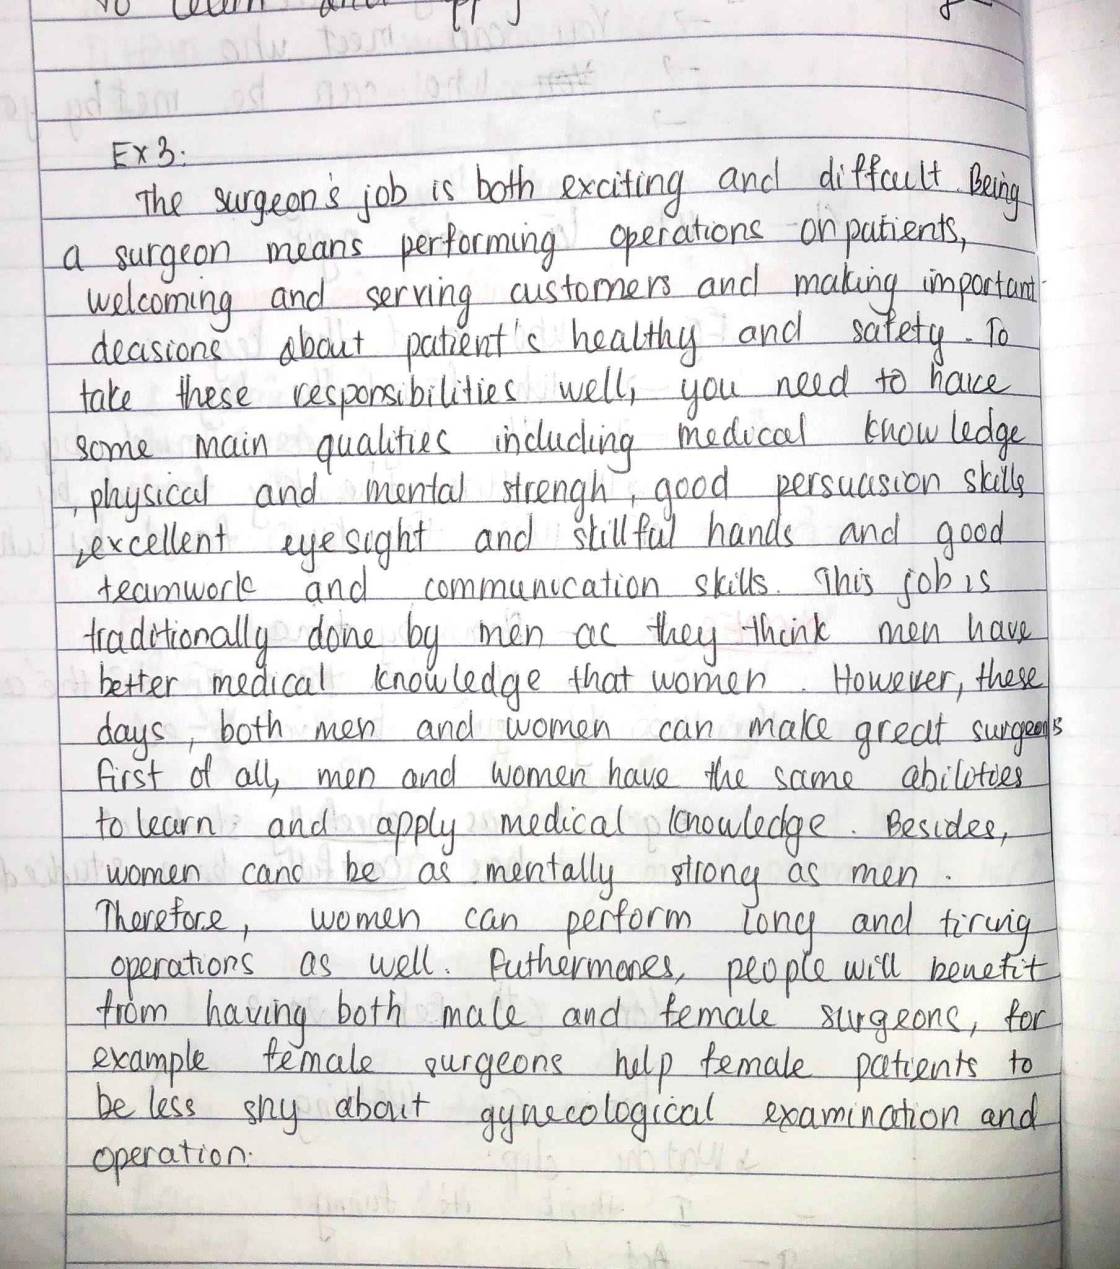 to learn and app
Ex 3:
The surgeon's job is both exciting and difficult. Being
a surgeon means performing operations on patients,
welcoming and serving customers and making important
decisions about patient's healthy and safety. To
take these responsibilities well, you need to have
some main qualities including medical knowledge
, physical and mental strengh, good persuasion skills
, excellent eyesight and skillful hands and good
teamwork and communication skills. This job is
traditionally done by men as they think men have
better medical knowledge that women. However, these
days, both men and women can make great surgeons
first of all, men and women have the same abilities
to learn and apply medical knowledge. Besides,
women cand be as mentally strong as men.
Therefore, women can perform long and tiring
operations as well. Futhermores, people will benefit
from having both male and female surgeons, for
example female surgeons help female patients to
be less shy about gynecological examination and
operation.